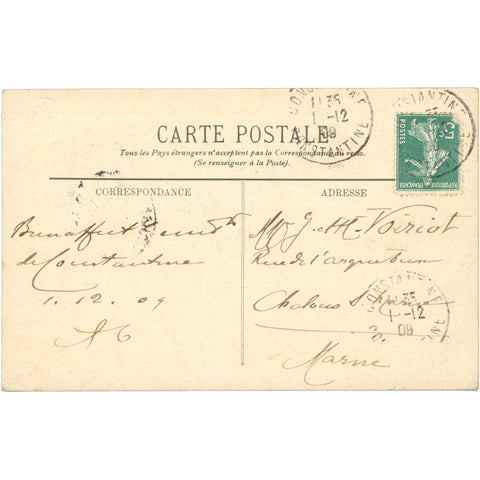 CONSTANTINE
11 35
1 -12
09
CONSTANTINE
5c
POSTES
REPUBLIQUE FRANÇAISE
CARTE POSTALE
Tous les Pays étrangers n'acceptent pas la Correspondance au recto.
(Se renseigner à la Poste).
CORRESPONDANCE
ADRESSE
de Constantine
1. 12. 09
J. M. Voiriot
Rue de l'arquebuse
Chalons s. Marne
Marne
CONSTANTINE
11 35
1 -12
09